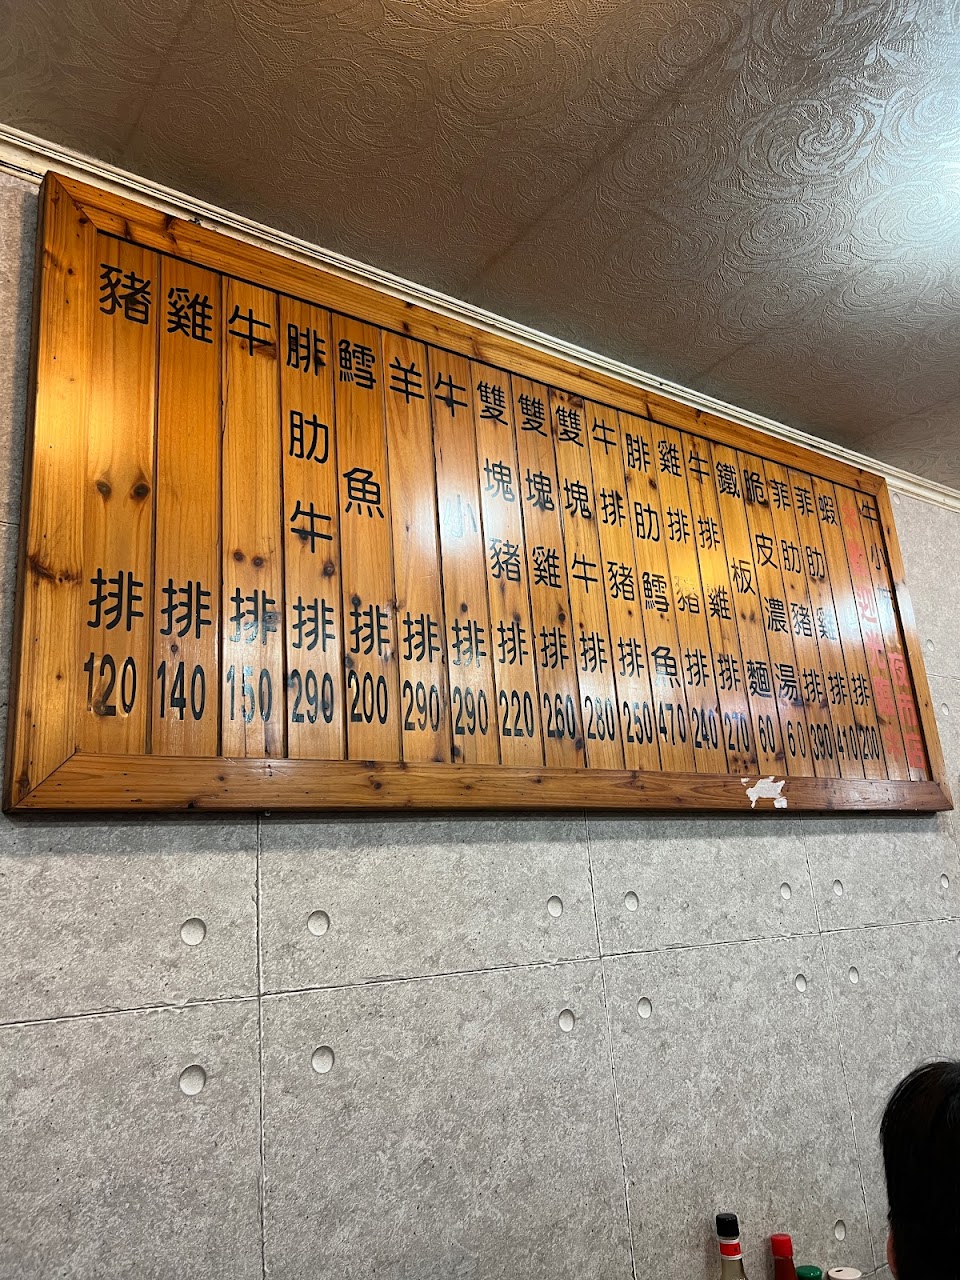 豬排120
雞排140
牛排150
腓肋牛排290
鱈魚排200
羊排290
牛小排290
雙塊豬排220
雙塊雞排260
雙塊牛排280
牛排豬排250
腓肋鱈魚470
雞排豬排240
牛排雞排270
鐵板麵60
脆皮濃湯60
菲肋豬排390
菲肋雞排410
蝦排200
牛小